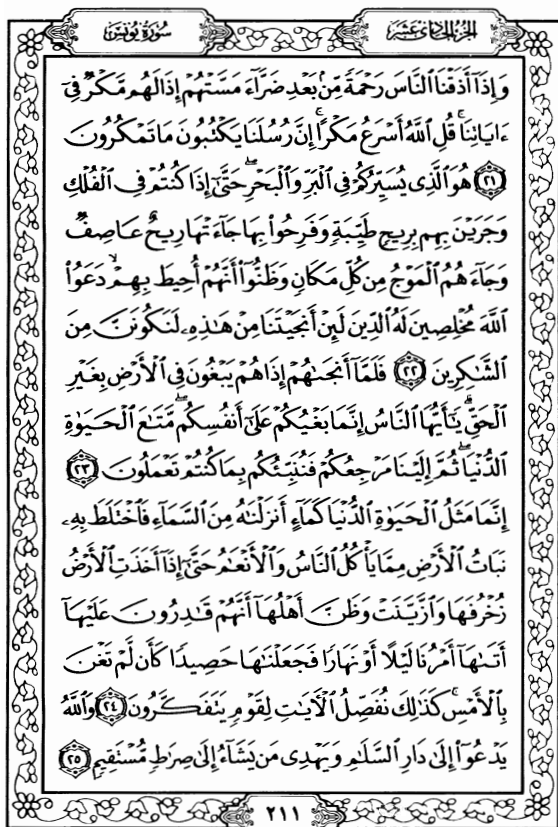 سُورَةُ يُونُسَ الجُزْءُ الحَادِى عَشَرَ
وَإِذَآ أَذَقْنَا ٱلنَّاسَ رَحْمَةً مِّنۢ بَعْدِ ضَرَّآءَ مَسَّتْهُمْ إِذَا لَهُم مَّكْرٌ فِىٓ
ءَايَاتِنَا ۚ قُلِ ٱللَّهُ أَسْرَعُ مَكْرًا ۚ إِنَّ رُسُلَنَا يَكْتُبُونَ مَا تَمْكُرُونَ
٢١ هُوَ ٱلَّذِى يُسَيِّرُكُمْ فِى ٱلْبَرِّ وَٱلْبَحْرِ ۖ حَتَّىٰٓ إِذَا كُنتُمْ فِى ٱلْفُلْكِ
وَجَرَيْنَ بِهِم بِرِيحٍ طَيِّبَةٍ وَفَرِحُوا۟ بِهَا جَآءَتْهَا رِيحٌ عَاصِفٌ
وَجَآءَهُمُ ٱلْمَوْجُ مِن كُلِّ مَكَانٍ وَظَنُّوٓا۟ أَنَّهُمْ أُحِيطَ بِهِمْ ۙ دَعَوُا۟
ٱللَّهَ مُخْلِصِينَ لَهُ ٱلدِّينَ لَئِنْ أَنجَيْتَنَا مِنْ هَـٰذِهِۦ لَنَكُونَنَّ مِنَ
ٱلشَّـٰكِرِينَ ٢٢ فَلَمَّآ أَنجَىٰهُمْ إِذَا هُمْ يَبْغُونَ فِى ٱلْأَرْضِ بِغَيْرِ
ٱلْحَقِّ ۗ يَـٰٓأَيُّهَا ٱلنَّاسُ إِنَّمَا بَغْيُكُمْ عَلَىٰٓ أَنفُسِكُم ۖ مَّتَـٰعَ ٱلْحَيَوٰةِ
ٱلدُّنْيَا ۖ ثُمَّ إِلَيْنَا مَرْجِعُكُمْ فَنُنَبِّئُكُم بِمَا كُنتُمْ تَعْمَلُونَ ٢٣
إِنَّمَا مَثَلُ ٱلْحَيَوٰةِ ٱلدُّنْيَا كَمَآءٍ أَنزَلْنَـٰهُ مِنَ ٱلسَّمَآءِ فَٱخْتَلَطَ بِهِۦ
نَبَاتُ ٱلْأَرْضِ مِمَّا يَأْكُلُ ٱلنَّاسُ وَٱلْأَنْعَـٰمُ حَتَّىٰٓ إِذَآ أَخَذَتِ ٱلْأَرْضُ
زُخْرُفَهَا وَٱزَّيَّنَتْ وَظَنَّ أَهْلُهَآ أَنَّهُمْ قَـٰدِرُونَ عَلَيْهَآ
أَتَىٰهَآ أَمْرُنَا لَيْلًا أَوْ نَهَارًا فَجَعَلْنَـٰهَا حَصِيدًا كَأَن لَّمْ تَغْنَ
بِٱلْأَمْسِ ۚ كَذَٰلِكَ نُفَصِّلُ ٱلْـَٔايَـٰتِ لِقَوْمٍ يَتَفَكَّرُونَ ٢٤ وَٱللَّهُ
يَدْعُوٓا۟ إِلَىٰ دَارِ ٱلسَّلَـٰمِ وَيَهْدِى مَن يَشَآءُ إِلَىٰ صِرَٰطٍ مُّسْتَقِيمٍ ٢٥
٢١١